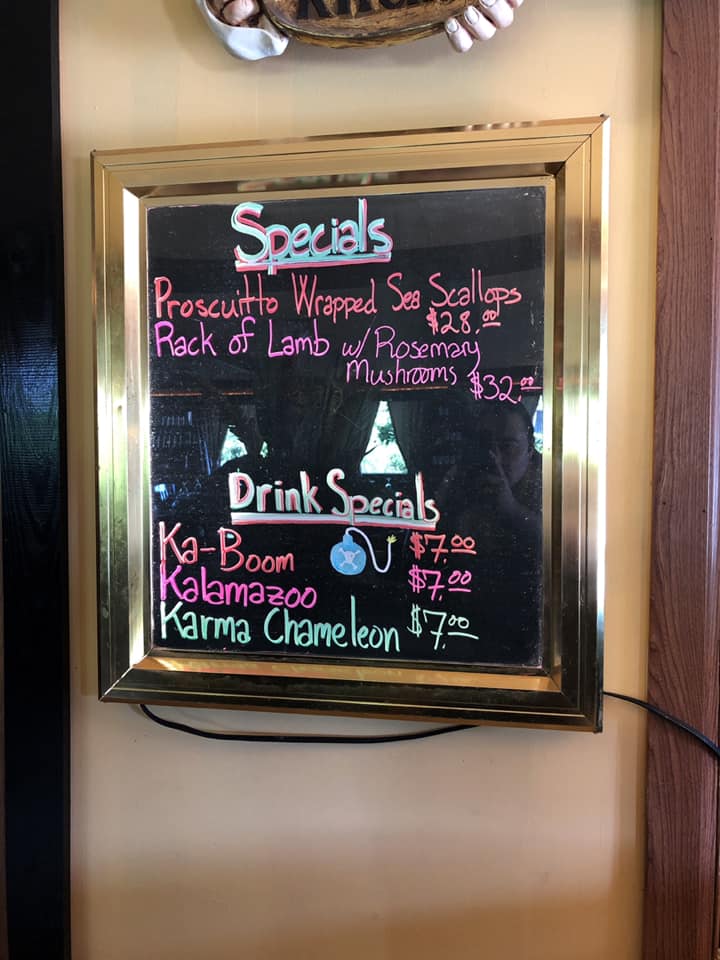 Specials
Proscuitto Wrapped Sea Scallops
$28.00
Rack of Lamb w/ Rosemary
Mushrooms $32.00
Drink Specials
Ka-Boom $7.00
Kalamazoo $7.00
Karma Chameleon $7.00